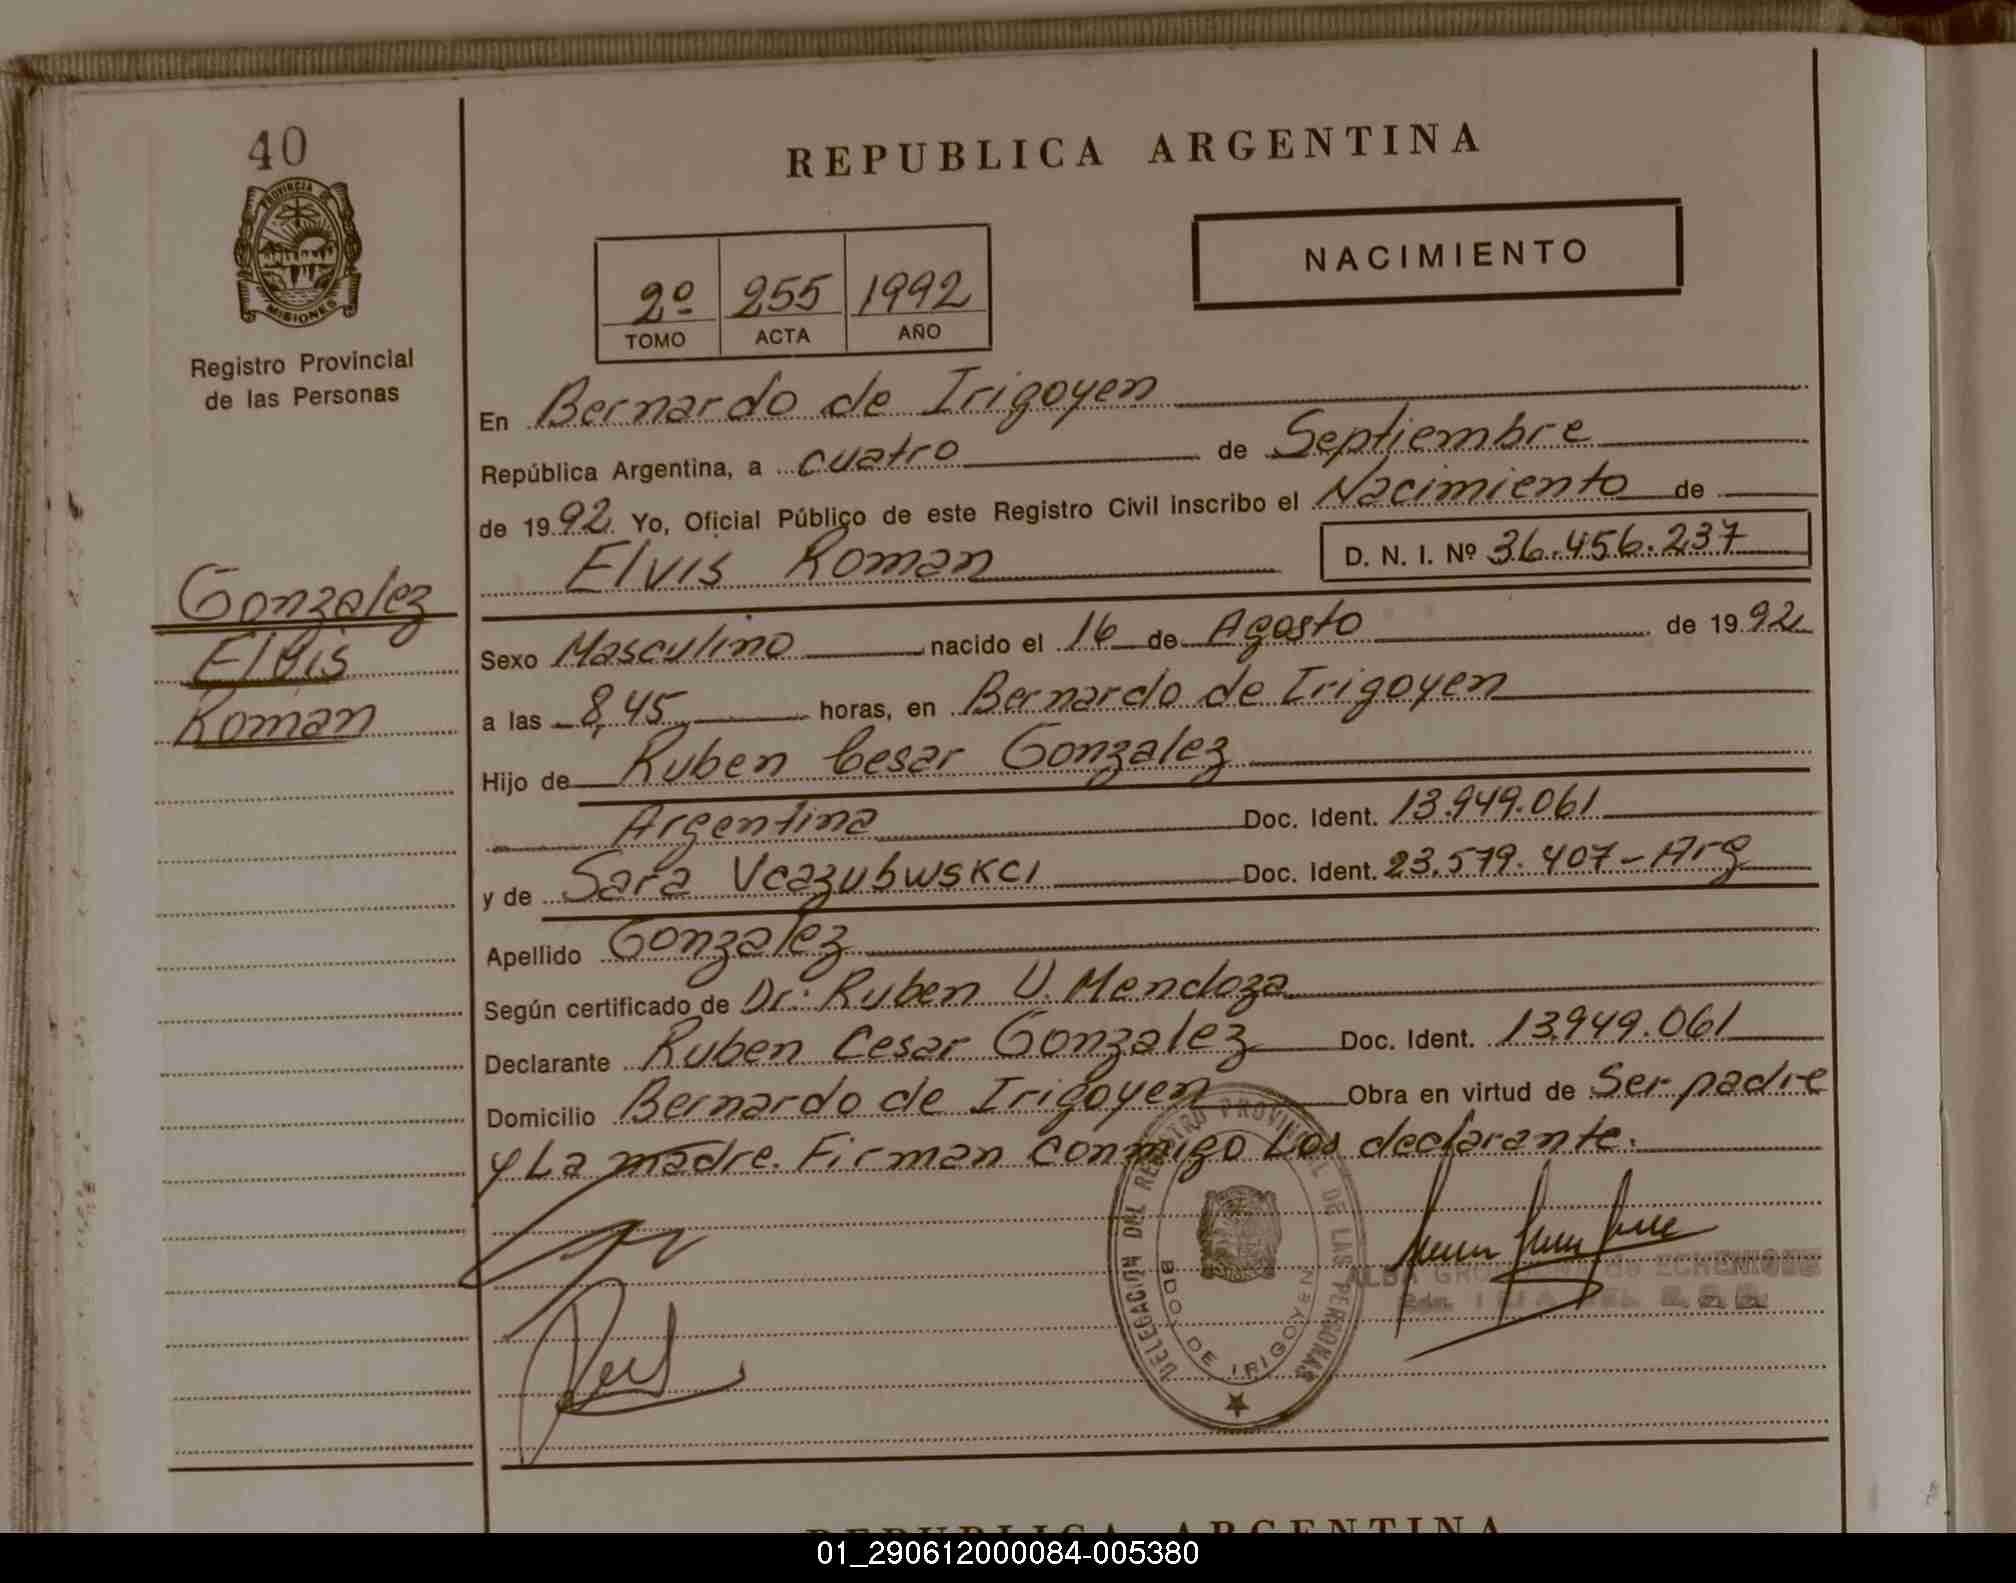 40
PROVINCIA DE
MISIONES
Registro Provincial
de las Personas
Gonzalez
Elvis
Roman
REPUBLICA ARGENTINA
NACIMIENTO
2º 255 1992
TOMO ACTA AÑO
En Bernardo de Irigoyen
República Argentina, a cuatro de Septiembre
de 1992 Yo, Oficial Público de este Registro Civil inscribo el Nacimiento de
Elvis Roman D. N. I. Nº 36.456.237
Sexo Masculino nacido el 16 de Agosto de 1992
a las 8,45 horas, en Bernardo de Irigoyen
Hijo de Ruben Cesar Gonzalez
Argentina Doc. Ident. 13.949.061
y de Sara Doc. Ident. 23.579.407 - Arg
Apellido Gonzalez
Según certificado de Dr: Ruben U. Mendoza
Declarante Ruben Cesar Gonzalez Doc. Ident. 13.949.061
Domicilio Bernardo de Irigoyen Obra en virtud de Ser padre
y La madre. Firman conmigo Los declarante.
DELEGACION DEL REGISTRO PROVINCIAL DE LAS PERSONAS
BDO. DE IRIGOYEN
ALBA ECHENIQUE
REPUBLICA ARGENTINA
01_290612000084-005380